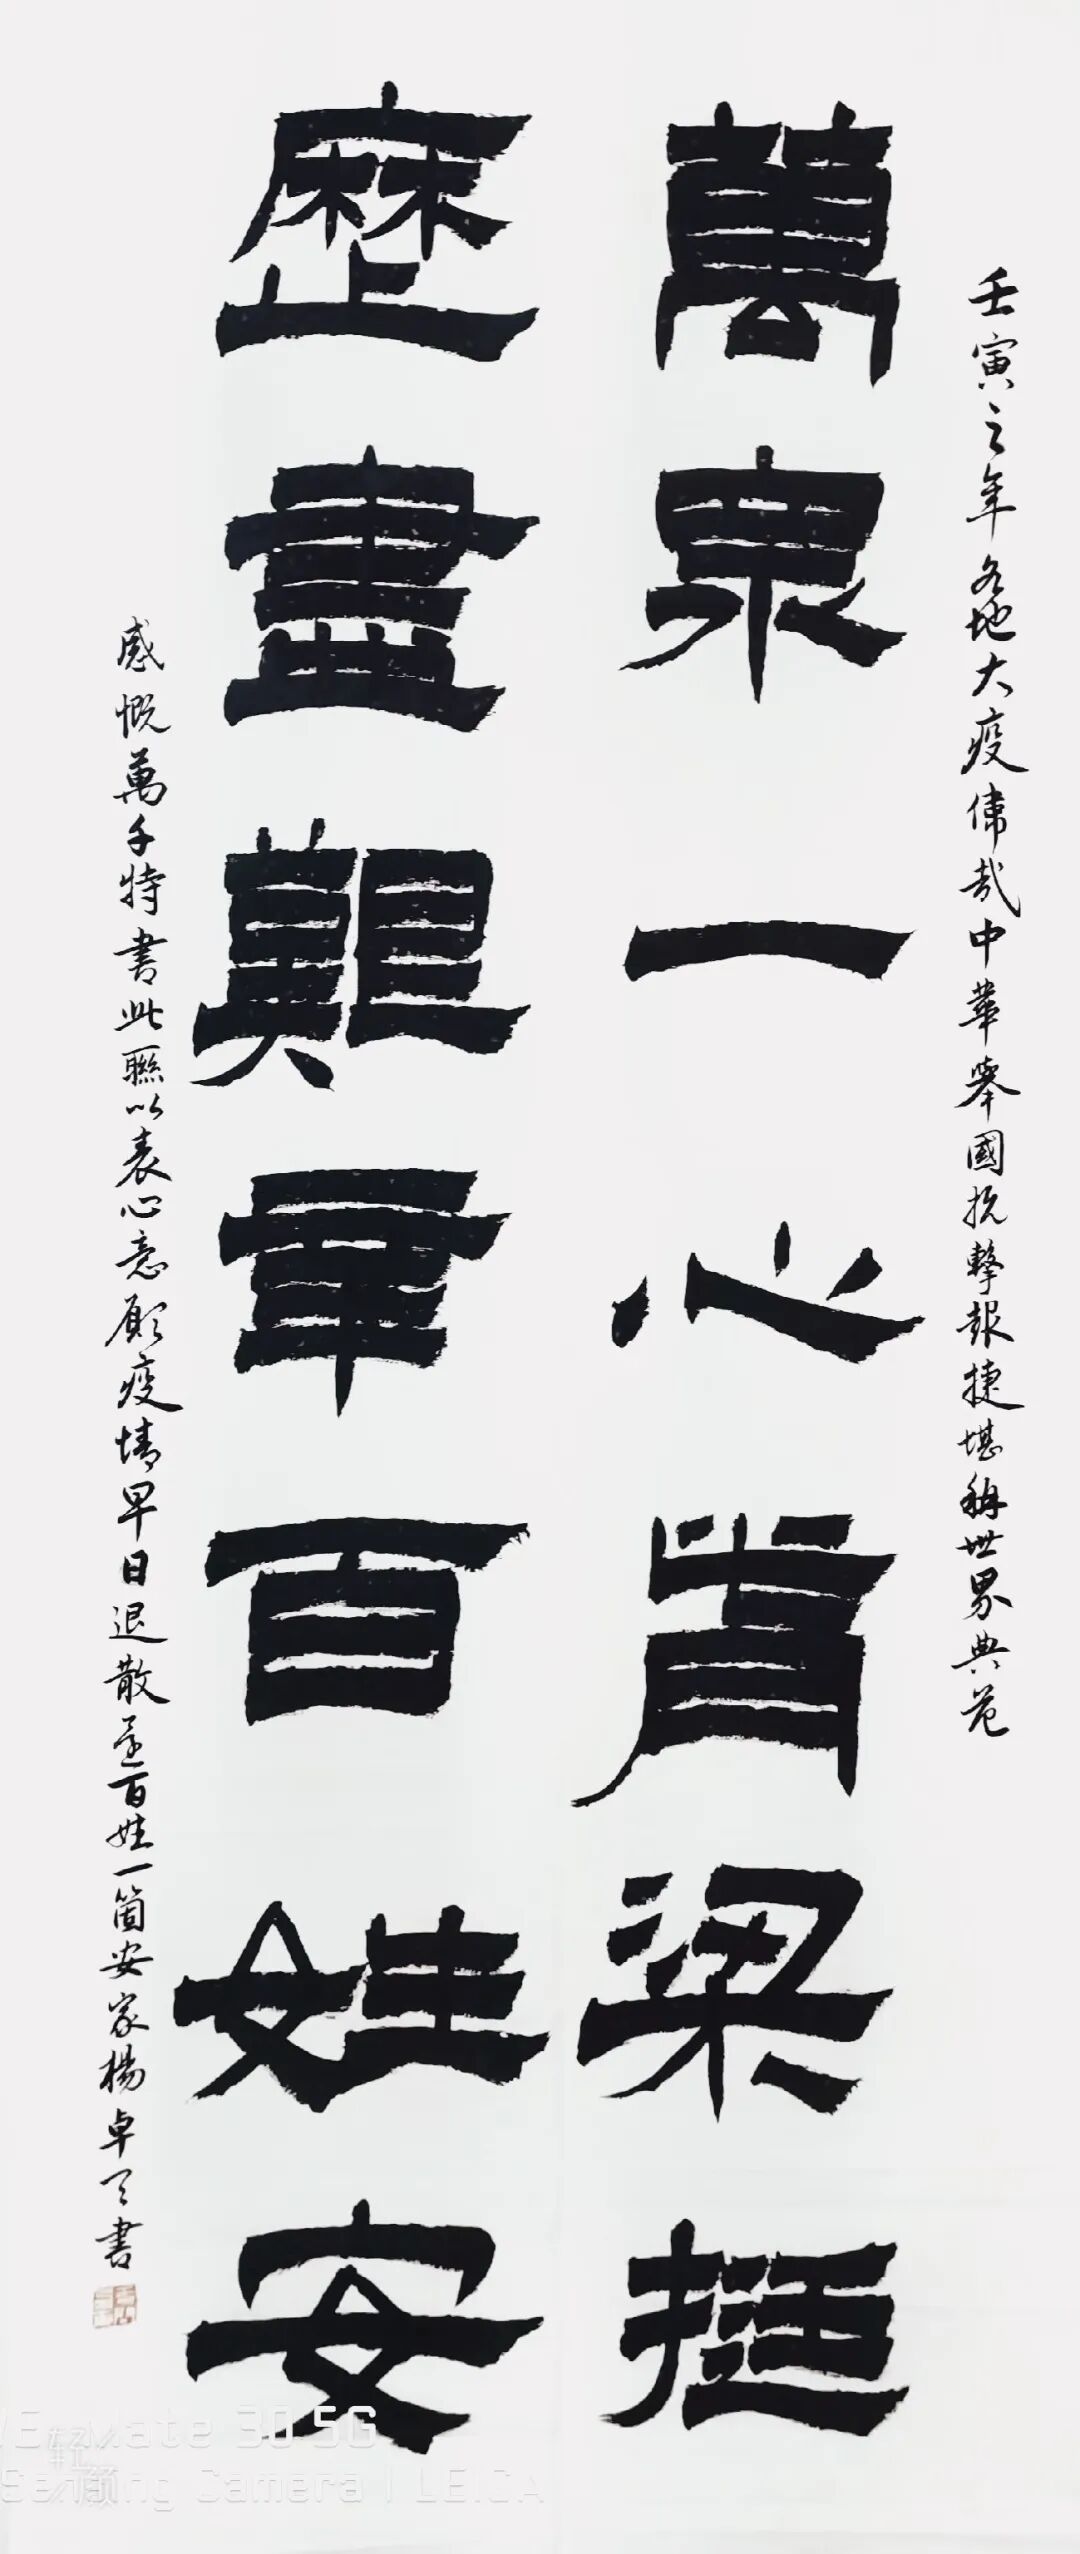 壬寅之年各地大疫偉哉中華舉國抗擊報捷堪稱世界典范
萬衆一心脊梁挺
歷盡艱辛百姓安
感慨萬千特書此聯以表心意願疫情早日退散還百姓一箇安家楊卓書
Mate 30 5G
Camera | LEICA
轻颜